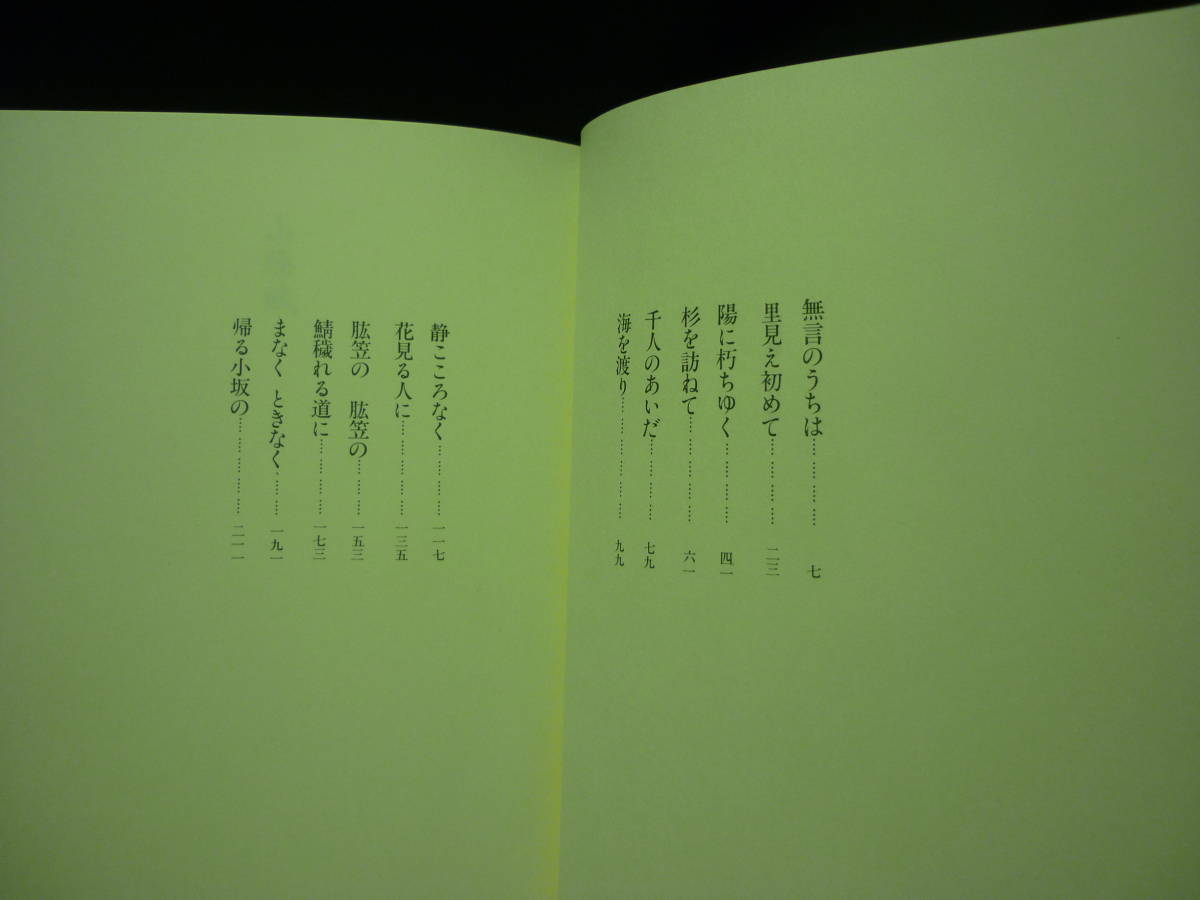 無言のうちは………………七
里見え初めて………………二三
陽に朽ちゆく………………四一
杉を訪ねて………………六一
千人のあいだ………………七九
海を渡り………………九九
静こころなく………………一一七
花見る人に………………一三五
肱笠の　肱笠の…………一五三
鯖穢れる道に…………一七三
まなく　ときなく………一九一
帰る小坂の………………二一一